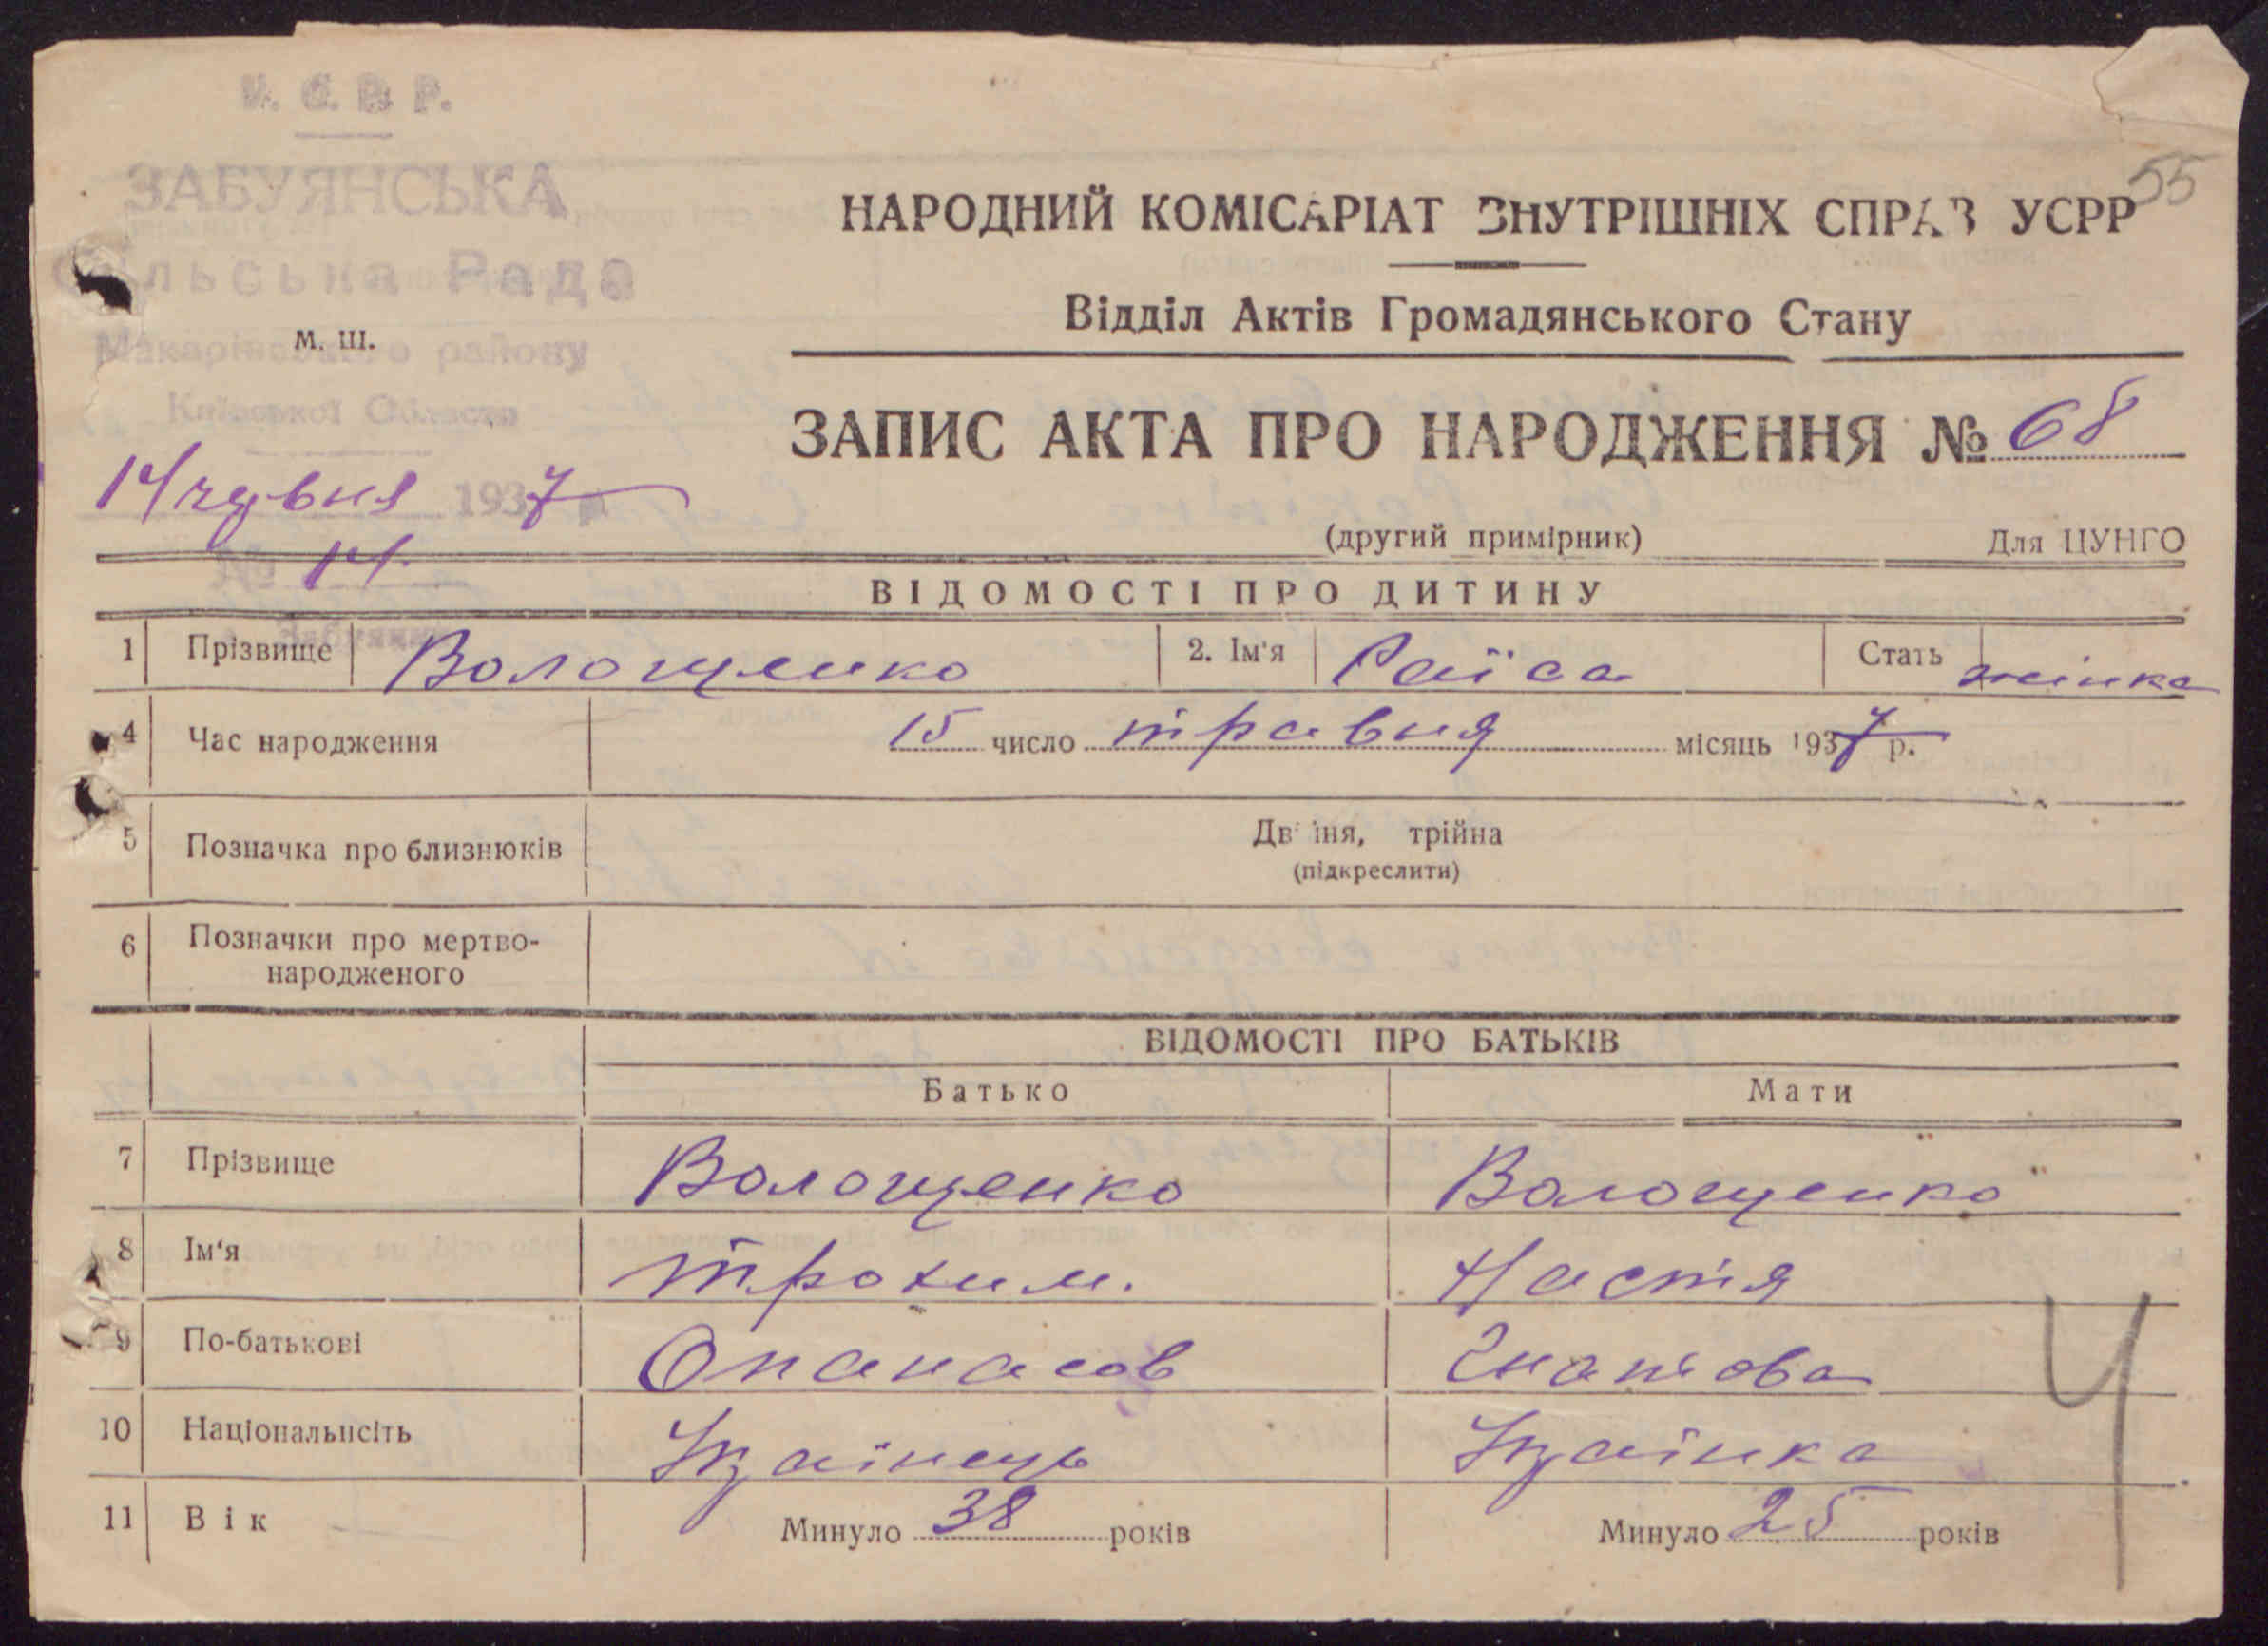 У. С. Р. Р.
ЗАБУЯНСЬКА
Сільська Рада
Макарівського району
Київської Області
м. ш.
14 чрвня 1937
№ 14
с. Забуяння
55
НАРОДНИЙ КОМІСАРІАТ ВНУТРІШНІХ СПРАВ УСРР
Відділ Актів Громадянського Стану
ЗАПИС АКТА ПРО НАРОДЖЕННЯ № 68
(другий примірник) Для ЦУНГО
ВІДОМОСТІ ПРО ДИТИНУ
1 Прізвище Волощенко 2. Ім'я Раїса Стать жінка
4 Час народження 15 число травня місяць 1937 р.
5 Позначка про близнюків Двійня, трійна
(підкреслити)
6 Позначки про мертво-
народженого
ВІДОМОСТІ ПРО БАТЬКІВ
Батько Мати
7 Прізвище Волощенко Волощенко
8 Ім‘я Трохим. Настя
9 По-батькові Опанасов Гнатова
10 Національнсіть Українець Українка
11 Вік Минуло 38 років Минуло 25 років